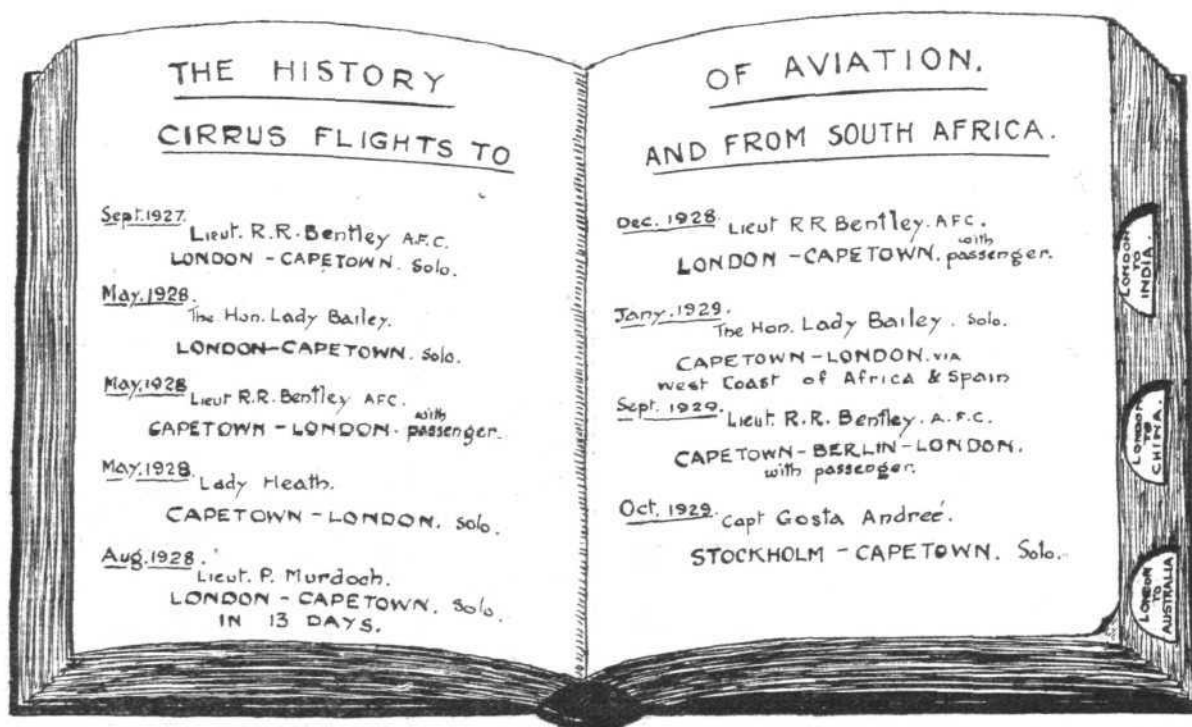 THE HISTORY
CIRRUS FLIGHTS TO
Sept. 1927.
Lieut. R.R. Bentley A.F.C.
LONDON - CAPETOWN. Solo.
May. 1928.
The Hon. Lady Bailey.
LONDON-CAPETOWN. Solo.
May. 1928
Lieut R.R. Bentley AFC.
CAPETOWN - LONDON. with passenger.
May. 1928.
Lady Heath.
CAPETOWN - LONDON. Solo.
Aug. 1928.
Lieut. P. Murdoch.
LONDON - CAPETOWN. Solo.
IN 13 DAYS.
OF AVIATION.
AND FROM SOUTH AFRICA.
Dec. 1928.
Lieut RR Bentley. AFC.
LONDON - CAPETOWN. with passenger.
Jany. 1929.
The Hon. Lady Bailey. Solo.
CAPETOWN - LONDON. VIA
West Coast of Africa & Spain
Sept. 1929.
Lieut. R.R. Bentley. A.F.C.
CAPETOWN - BERLIN - LONDON.
with passenger.
Oct. 1929.
Capt Gosta Andreé.
STOCKHOLM - CAPETOWN. Solo.
LONDON
TO
INDIA.
LONDON
TO
CHINA.
LONDON
TO
AUSTRALIA